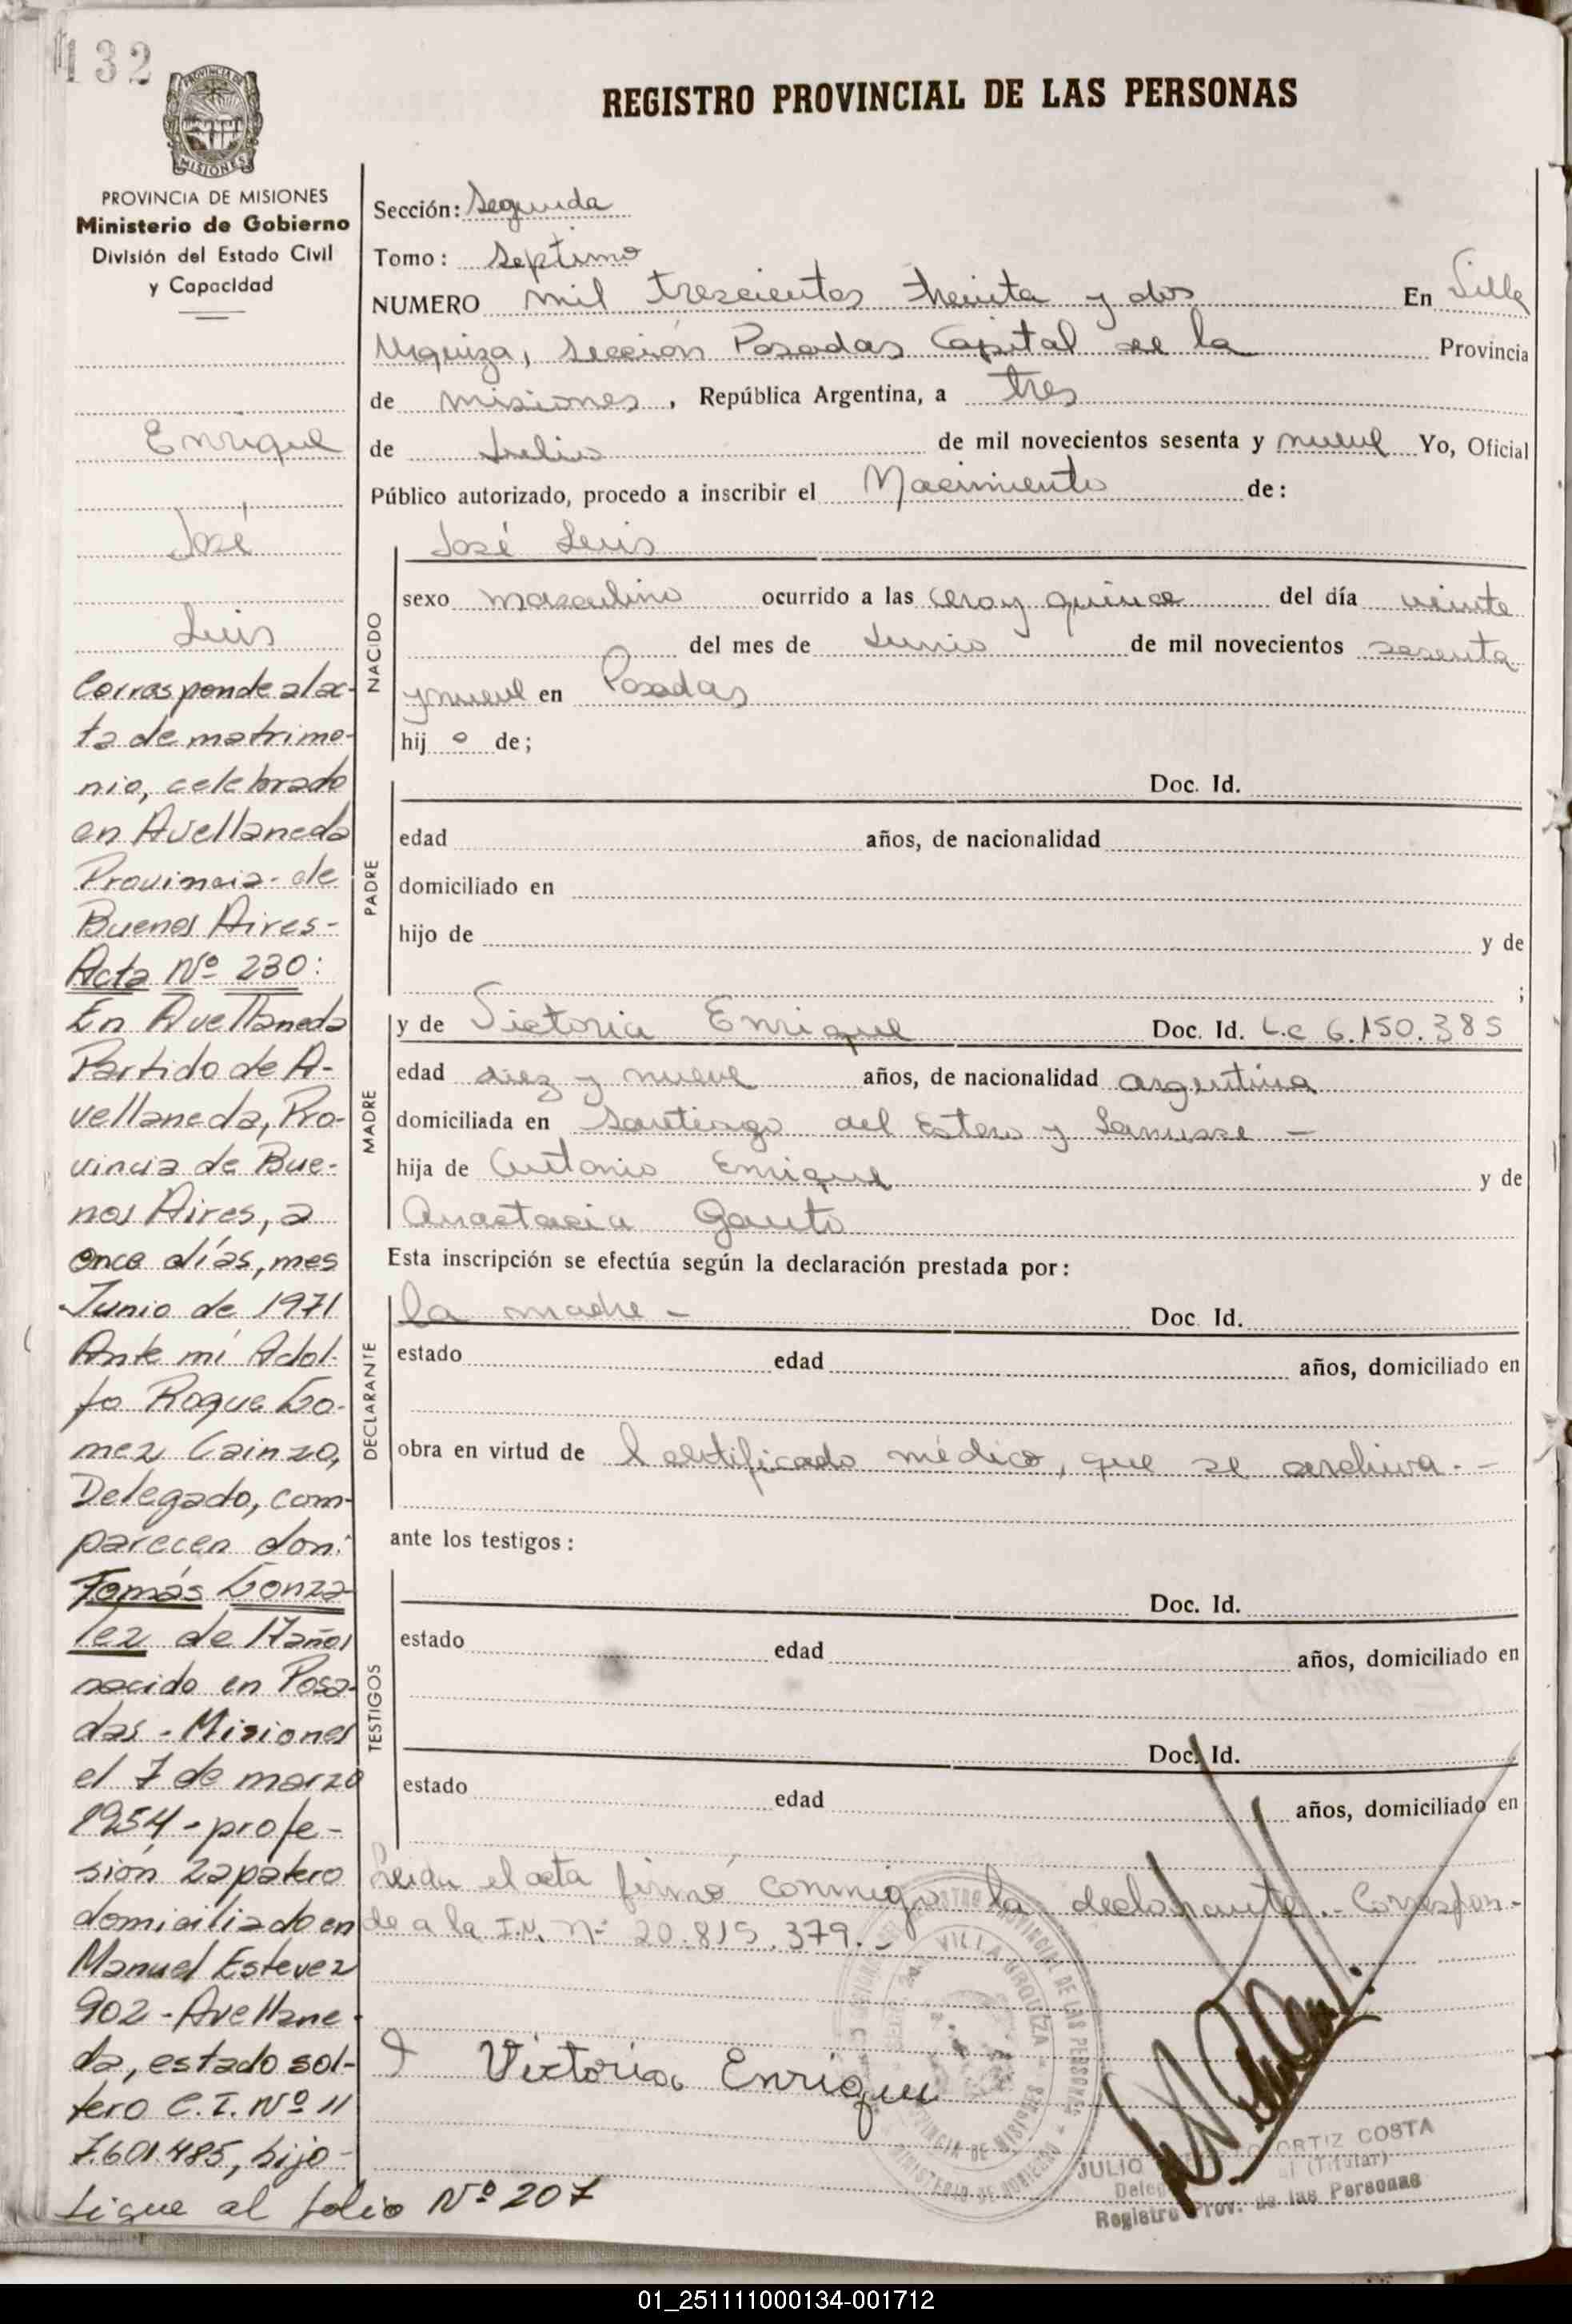 132
REGISTRO PROVINCIAL DE LAS PERSONAS
MISIONES
PROVINCIA DE MISIONES
Ministerio de Gobierno
División del Estado Civil
y Capacidad
Enrique
José
Luis
Corresponde al ac-
ta de matrimo-
nio, celebrado
en Avellaneda
Provincia de
Buenos Aires-
Acta Nº 230:
En Avellaneda
Partido de A-
vellaneda, Pro-
vincia de Bue-
nos Aires, a
once días, mes
Junio de 1971
Ante mí Adol-
fo Roque Go-
mez Cainzo,
Delegado, com-
parecen don:
Tomás Gonza-
lez de 17 años
nacido en Posa-
das - Misiones
el 7 de marzo
1954 - profe-
sión zapatero
domiciliado en
Manuel Estevez
902 - Avellane-
da, estado sol-
tero C.I. Nº 11
7.601.485, hijo-
Sigue al folio Nº 207
Sección: Segunda
Tomo: Septimo
NUMERO mil trescientos treinta y dos En Villa
Urquiza, Sección Posadas Capital de la Provincia
de misiones, República Argentina, a tres
de Julio de mil novecientos sesenta y nueve Yo, Oficial
Público autorizado, procedo a inscribir el Nacimiento de:
NACIDO
José Luis
sexo masculino ocurrido a las cero y quince del día veinte
del mes de Junio de mil novecientos sesenta
y nueve en Posadas
hij o de;
PADRE
Doc. Id.
edad años, de nacionalidad
domiciliado en
hijo de y de
;
MADRE
y de Victoria Enrique Doc. Id. L.c 6.150.385
edad diez y nueve años, de nacionalidad argentina
domiciliada en Santiago del Estero y Lanusse -
hija de Antonio Enrique y de
Anastacia Gauto
Esta inscripción se efectúa según la declaración prestada por:
DECLARANTE
la madre - Doc. Id.
estado edad años, domiciliado en
obra en virtud de Certificado médico, que se archiva. -
ante los testigos:
TESTIGOS
Doc. Id.
estado edad años, domiciliado en
Doc. Id.
estado edad años, domiciliado en
Leida el acta firmó conmigo la declarante.- Correspon-
de a la I.N. Nº 20.815.379.-
Victoria Enrique
VILLA URQUIZA
PROVINCIA DE MISIONES
MINISTERIO DE GOBIERNO
JULIO ORTIZ COSTA
(Titular)
Registro Prov. de las Personas
01_251111000134-001712